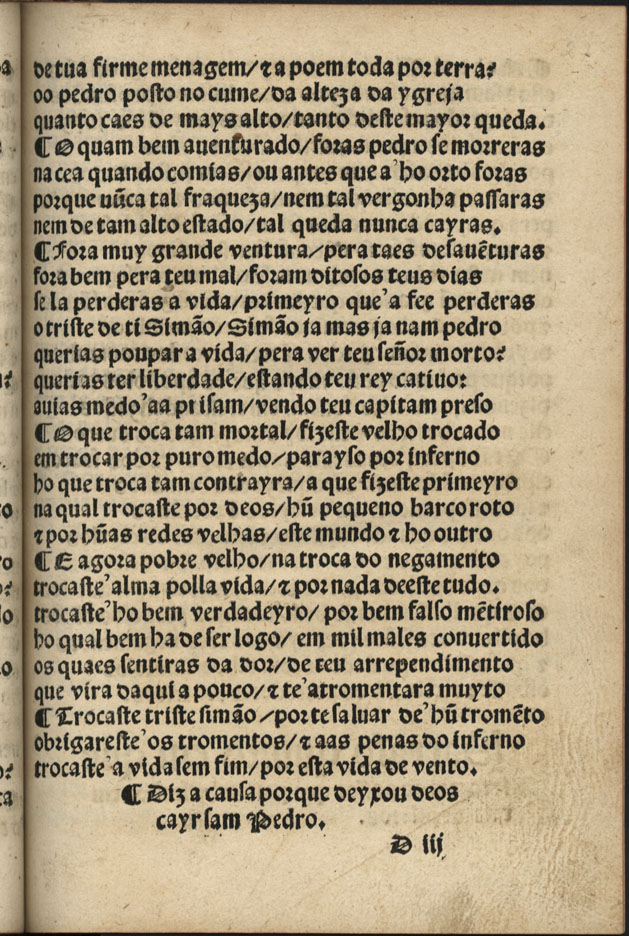 de tua firme menagem/⁊ a poem toda por terra?
oo pedro posto no cume/da alteza da ygreja
quanto caes de mays alto/tanto deste mayor queda.
¶ O quam bem auenturado/foras pedro se morreras
na cea quando comias/ou antes que a'ho orto foras
porque nũca tal fraqueza/nem tal vergonha passaras
nem de tam alto estado/tal queda nunca cayras.
¶ Fora muy grande ventura/pera taes desauẽturas
fora bem pera teu mal/foram ditosos teus dias
se la perderas a vida/primeyro que'a fee perderas
o triste de ti Simão/Simão ja mas ja nam pedro
querias poupar a vida/pera ver teu señor morto?
querias ter liberdade/estando teu rey catiuo?
auias medo'aa prisam/vendo teu capitam preso
¶ O que troca tam mortal/fizeste velho trocado
em trocar por puro medo/parayso por inferno
ho que troca tam contrayra/a que fizeste primeyro
na qual trocaste por deos/hũ pequeno barco roto
⁊ por hũas redes velhas/este mundo ⁊ ho outro
¶ E agora pobre velho/na troca do negamento
trocaste'alma polla vida/⁊ por nada deeste tudo.
trocaste'ho bem verdadeyro/ por bem falso mẽtiroso
ho qual bem ha de ser logo/ em mil males conuertido
os quaes sentiras da dor/de teu arrependimento
que vira daqui a pouco/⁊ te'atromentara muyto
¶ Trocaste triste simão/por te saluar de'hũ tromẽto
obrigareste'os tromentos/⁊ aas penas do inferno
trocaste'a vida sem fim/por esta vida de vento.
¶ Diz a causa porque deyxou deos
cayr sam Pedro.
D iij